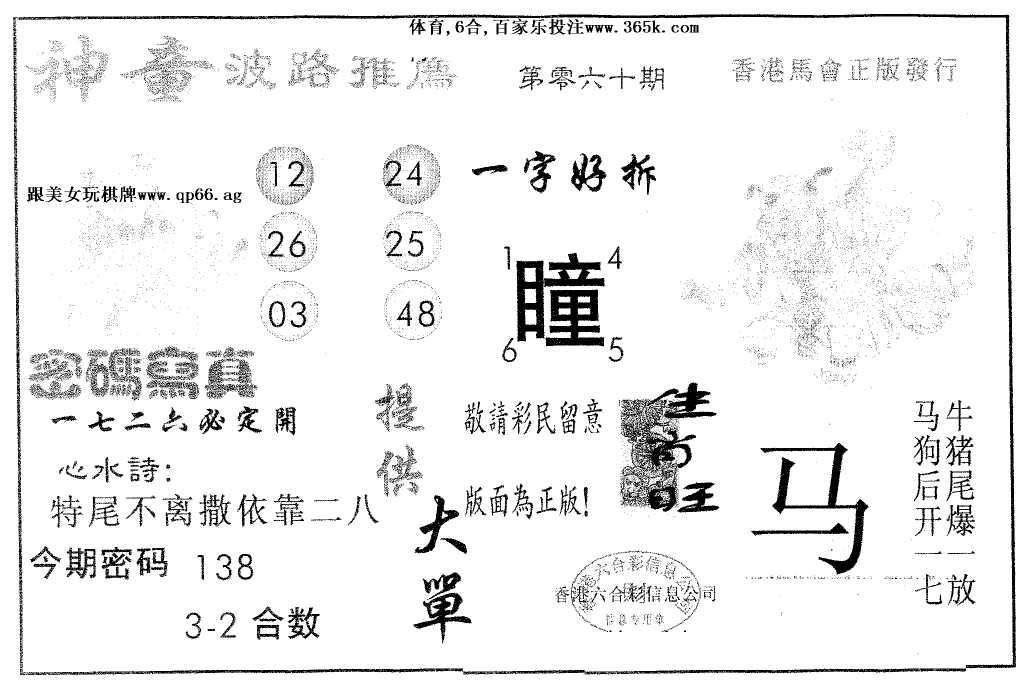 体育,6合,百家乐投注www.365k.com
神童波路推薦
第零六十期
香港馬會正版發行
跟美女玩棋牌www.qp66.ag
12 24
26 25
03 48
一字好拆
1 4
瞳
6 5
密碼寫真
一七二六必定開
心水詩:
特尾不离撒依靠二八
今期密码 138
3-2 合数
提供
大單
敬請彩民留意
版面為正版!
尚
旺
马
马狗后开一七
牛猪尾爆一放
香港六合彩信息公司
香港六合彩信息公司
信息专用章